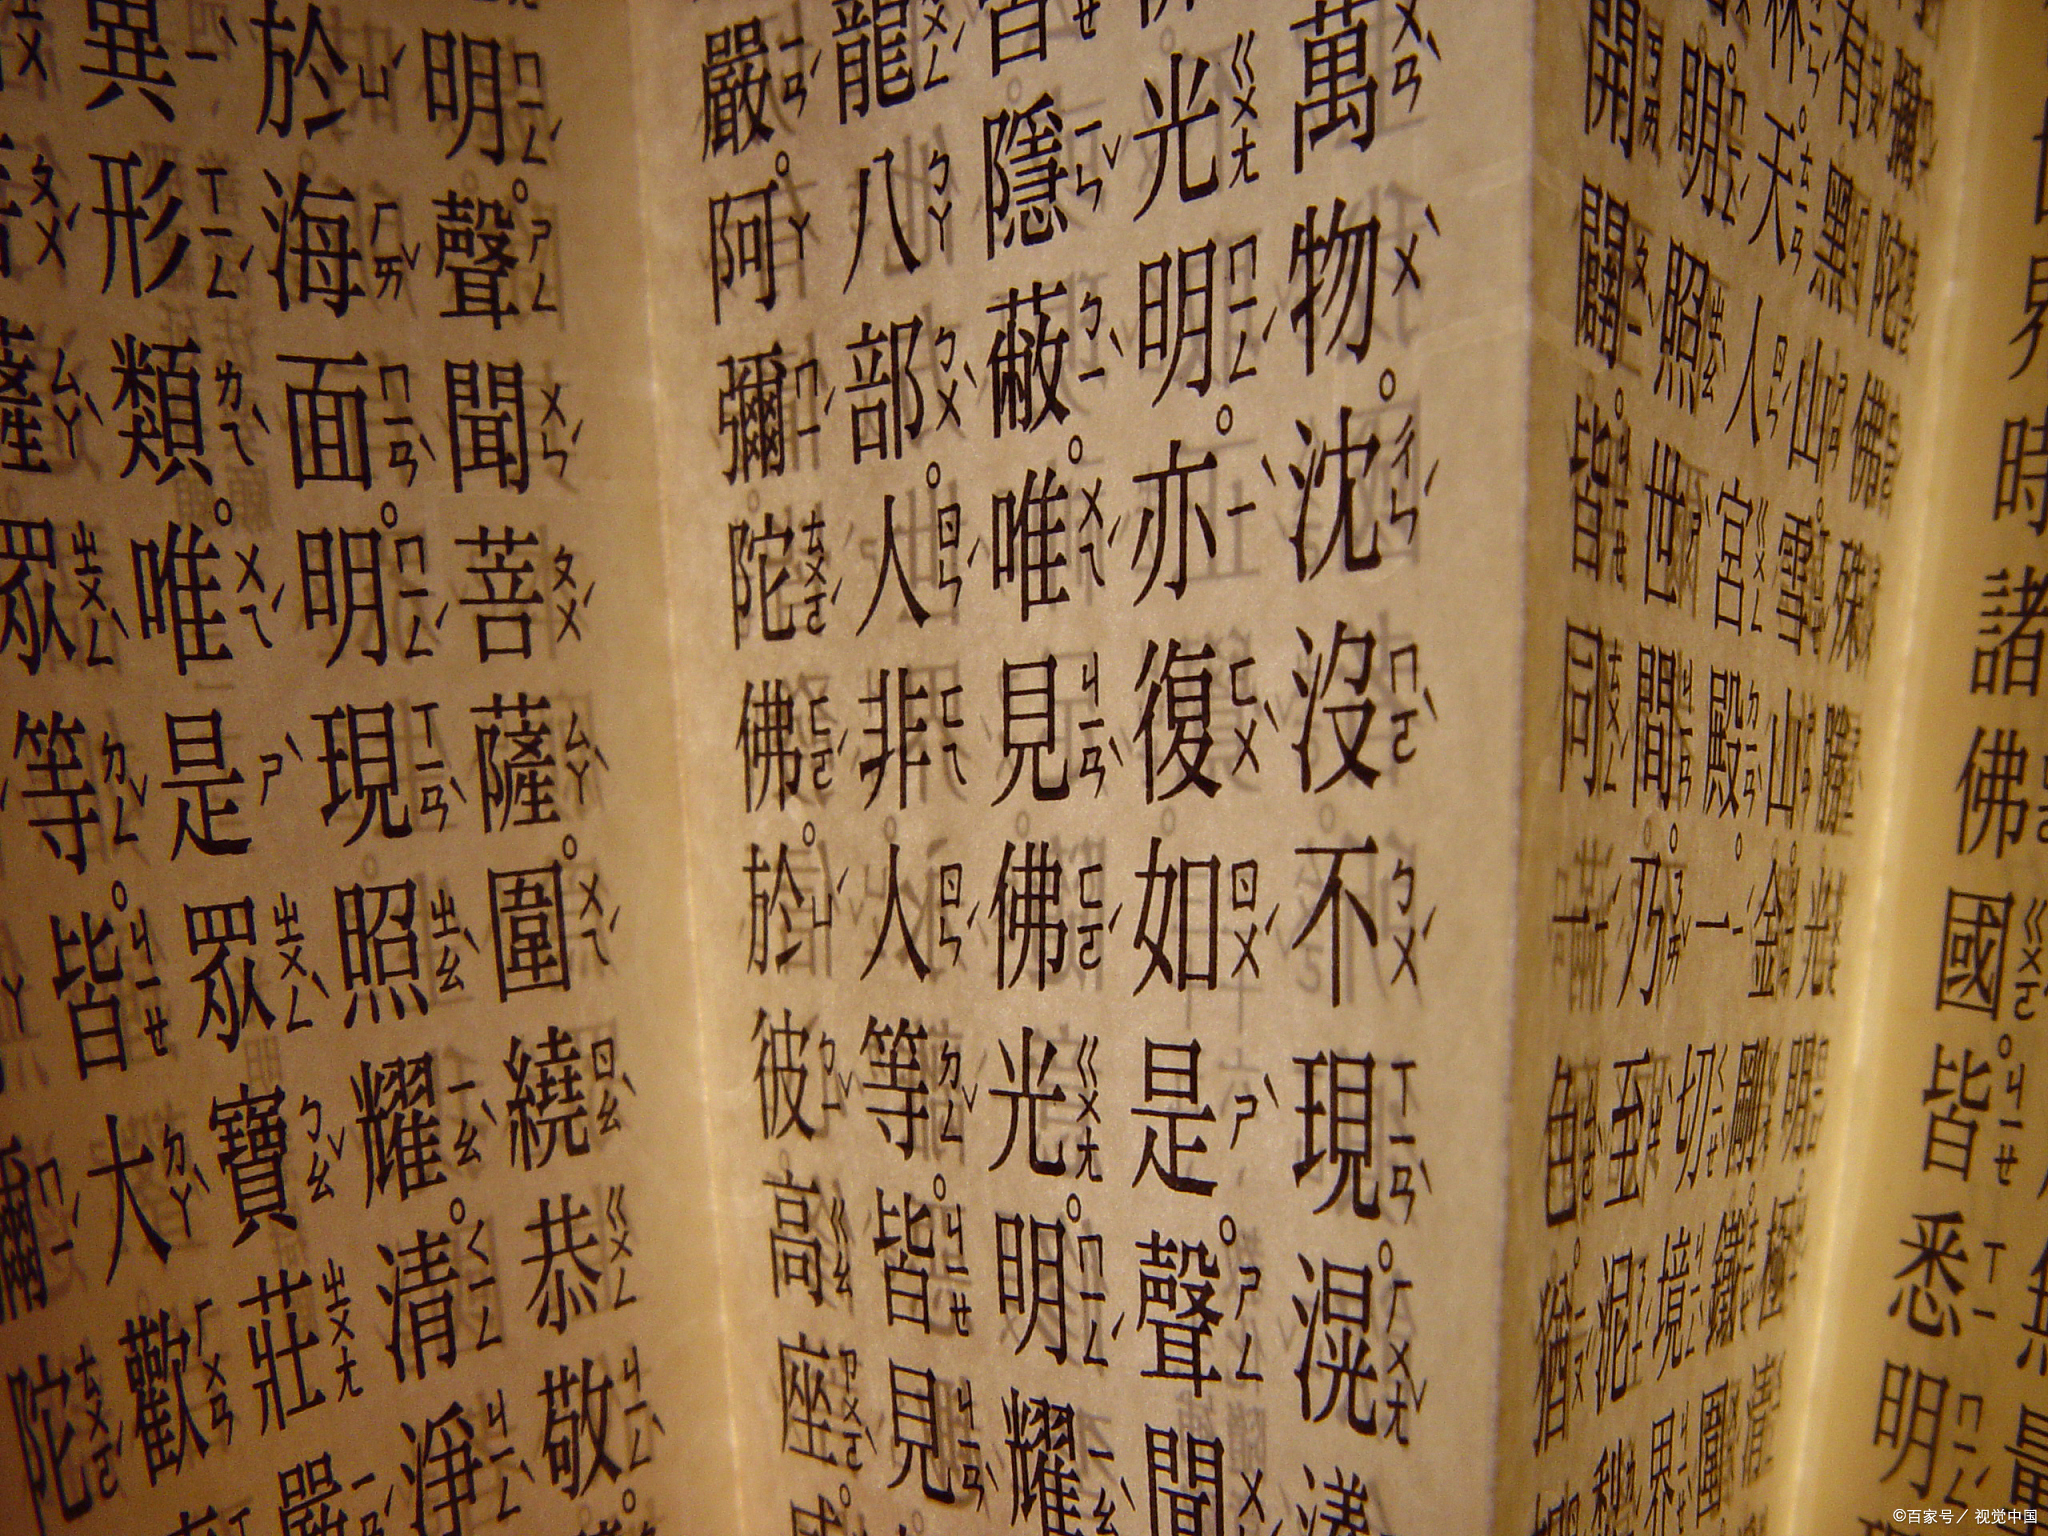 界時諸佛國。皆悉明
羅陀佛殊勝光明。極
有黑山雪山金剛鐵圍
林。天人宮殿。一切境界
明照世間。乃至泥犁
開闢。皆同一色。猶
萬物。沈沒不現。滉漾
光明。亦復如是。聲聞
皆隱蔽。唯見佛光。明耀
龍八部。人非人等。皆見
嚴。阿彌陀佛。於彼高座
明。聲聞菩薩。圍繞恭敬。
於海面。明現照耀。清淨
異形類。唯是眾寶莊嚴
菩薩眾等。皆大歡
彌陀
©百家号／视觉中国